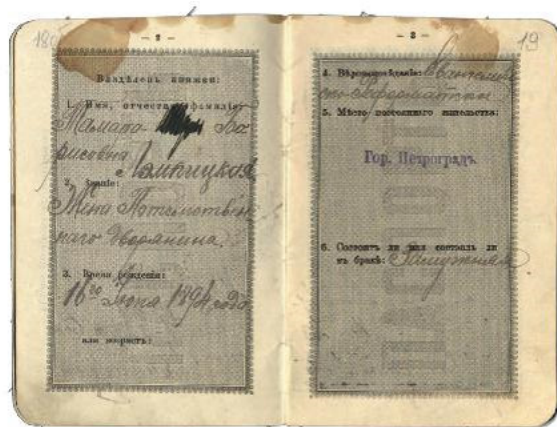 180
— 2 —
Владѣлецъ книжки:
1. Имя, отчество, фамилія:
Тамара Бо-
рисовна Лэмпицкая
2. Званіе:
Жена Потомствен-
наго Дворянина.
3. Время рожденія:
16го 1894 года
или возрастъ:
19
— 3 —
4. Вѣроисповѣданіе: Евангелическо-
Реформатское
5. Мѣсто постояннаго жительства:
Гор. Петроградъ.
6. Состоитъ ли или состоялъ ли
въ бракѣ: Замужняя